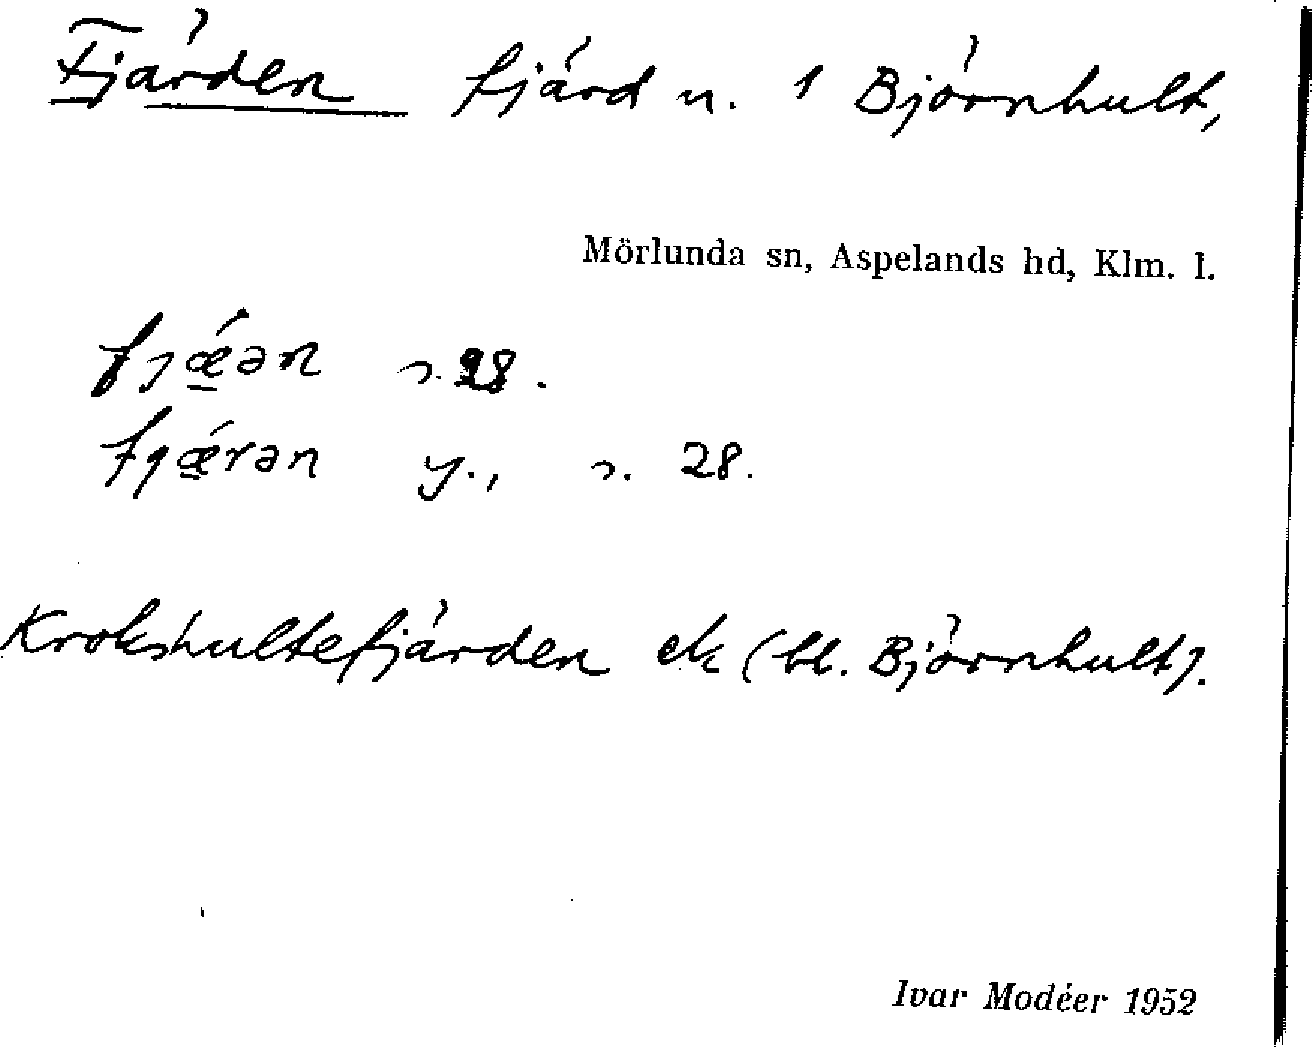 Fjärden fjärd n. 1 Björnhult,
Mörlunda sn, Aspelands hd, Klm. l.
fjǽ̱ən s. 28.
fjǽ̱rən y., s. 28.
Krokshultefjärden ek (bl. Björnhult).
Ivar Modéer 1952